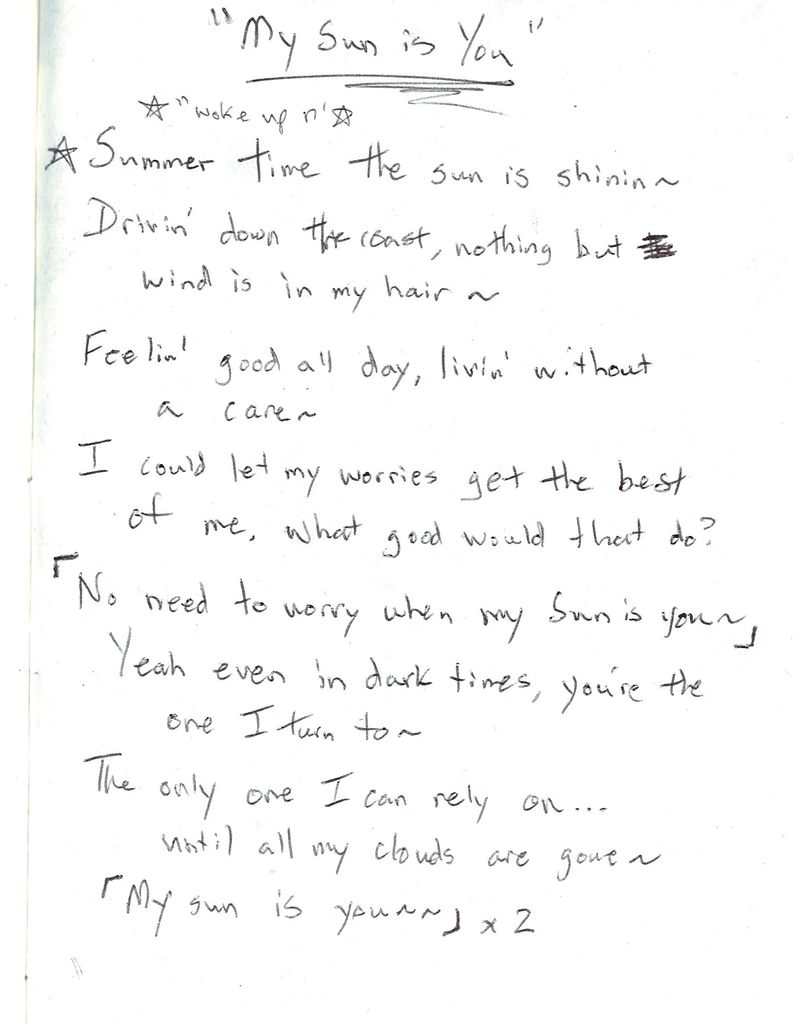 "My Sun is You"
☆ "woke up n' ☆
☆ Summer time the sun is shinin~
Drivin' down the coast, nothing but
wind is in my hair ~
Feelin' good all day, livin' without
a care~
I could let my worries get the best
of me, what good would that do?
「No need to worry when my Sun is you~」
Yeah even in dark times, you're the
one I turn to~
The only one I can rely on...
until all my clouds are gone~
「My sun is you~~~」 x 2